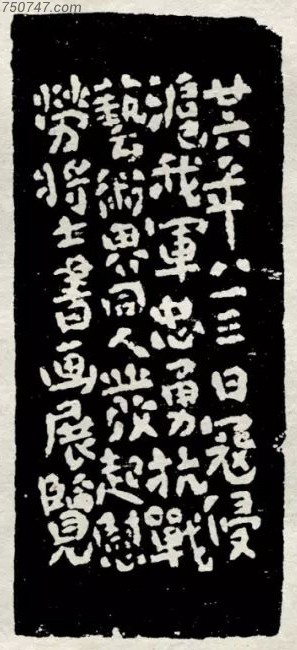 750747.com
廿六年八一三日寇侵
滬我軍忠勇抗戰
藝術界同人並發起慰
勞將士書画展覽